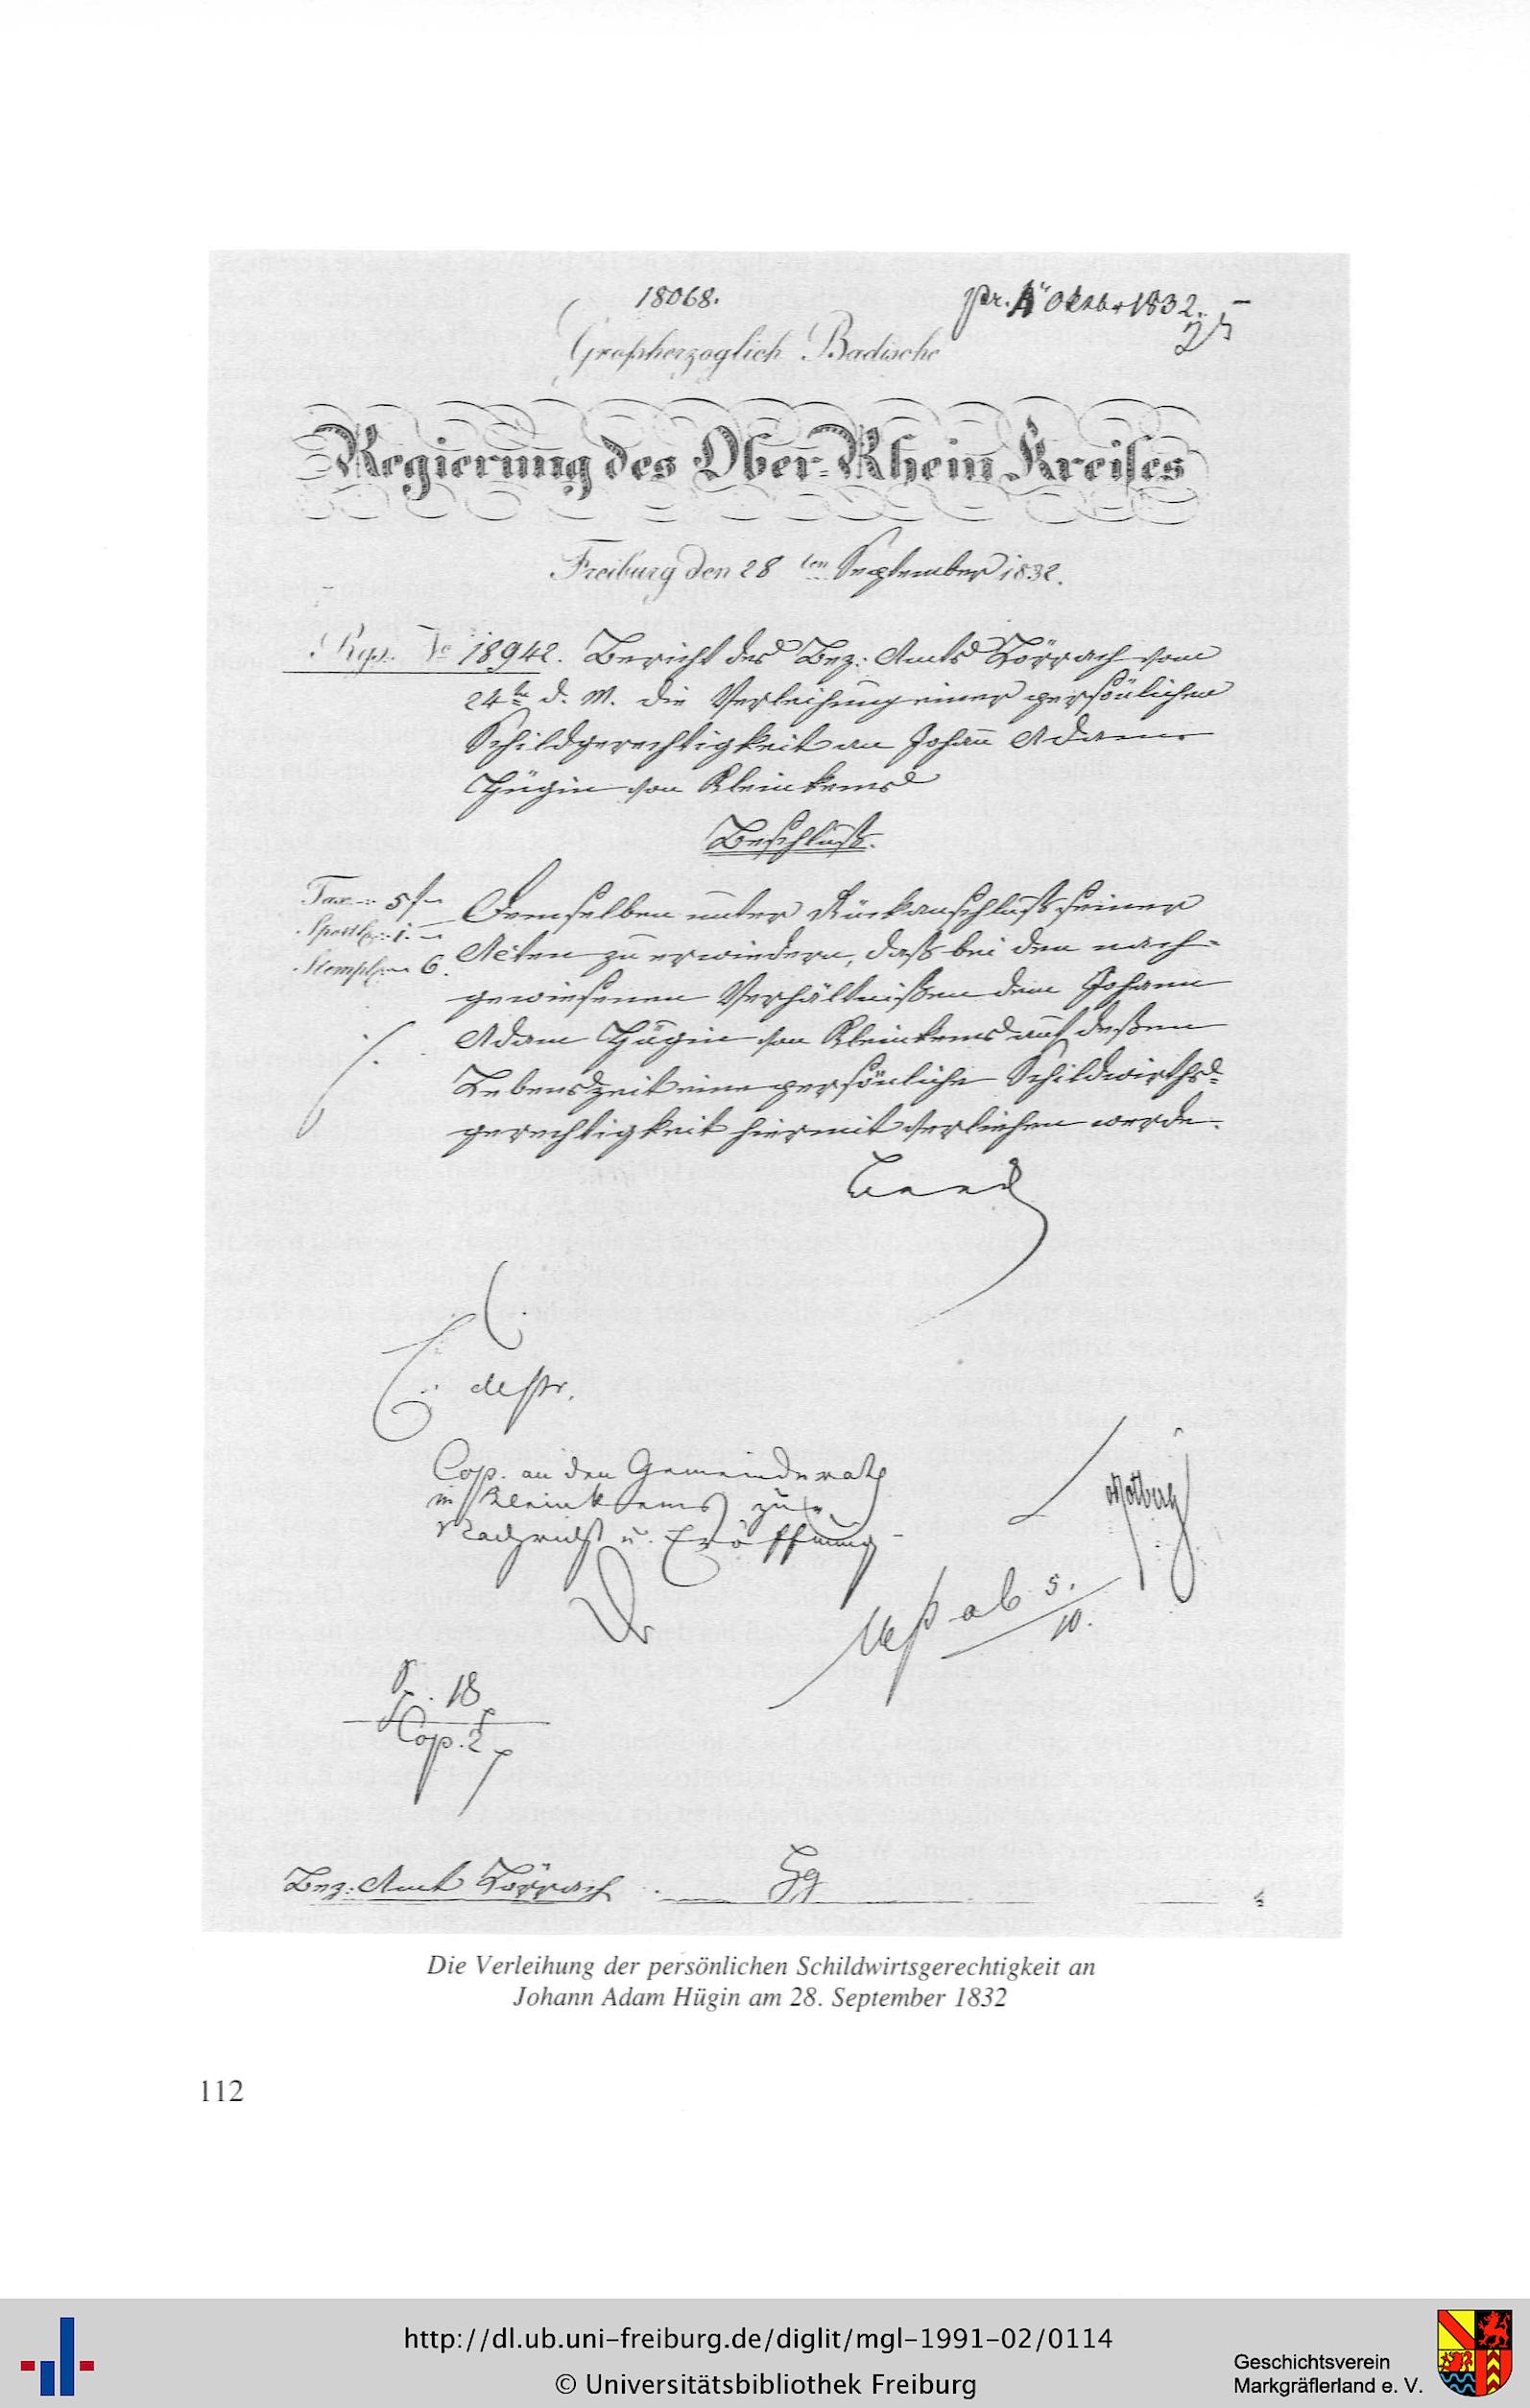 18068.
pr. 4" Oktbr 1832.
25
Großherzoglich Badische
Regierung des Ober-Rhein Kreises
Freiburg den 28 ten September 1832.
Rgs. No 18942. Bericht des Bez: Amts Lörrach vom
24ten d. M. die Verleihung einer persönlichen
Schildgerechtigkeit an Johann Adam
Hügin von Kleinkems
Beschluß.
Tax 5 f
Sportl. 1.
Stempl. 6.
Demselben unter Rückanschluß seiner
Acten zu erwiedern, daß bei den nach-
gewiesenen Verhältnißen dem Johann
Adam Hügin von Kleinkems auf deßen
Lebenszeit eine persönliche Schildwirths-
gerechtigkeit hiermit verliehen werde.
Cop. an den Gemeinderath
in Kleinkems zur
Nachricht u. Eröffnung
ab 5.
10.
18
Cop. 2
Bez: Amt Lörrach
Die Verleihung der persönlichen Schildwirtsgerechtigkeit an
Johann Adam Hügin am 28. September 1832
112
http://dl.ub.uni-freiburg.de/diglit/mgl-1991-02/0114
© Universitätsbibliothek Freiburg
Geschichtsverein
Markgräflerland e. V.